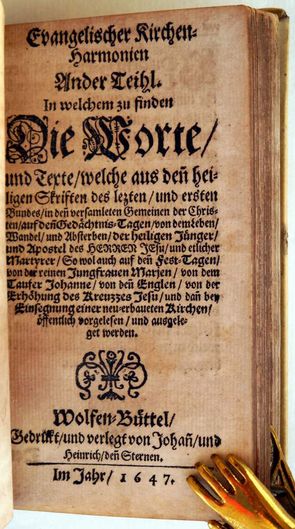 Evangelischer Kirchen-
Harmonien
Ander Teihl.
In welchem zu finden
Die Worte/
und Texte/welche aus deñ hei-
ligen Skriften des lezten/und ersten
Bundes/in deñ versamleten Gemeinen der Chris-
ten/auf deñ Gedächtnis-Tagen/von dem Leben/
Wandel/und Absterben/der heiligen Jünger/
und Apostel des HERREN JEsu/und etlicher
Martyrer/So wol auch auf deñ Fest-Tagen/
von der reinen Jungfrauen Marjen/von dem
Taufer Johanne/von deñ Englen/von der
Erhöhung des Kreuzzes Jesu/und dañ bey
Einsegnung einer neu-erbaueten Kirchen/
öffentlich vorgelesen/und ausgele-
get werden.
Wolfen-Büttel/
Gedrükt/und verlegt von Johañ/und
Heinrich/deñ Sternen.
Im Jahr/1647.